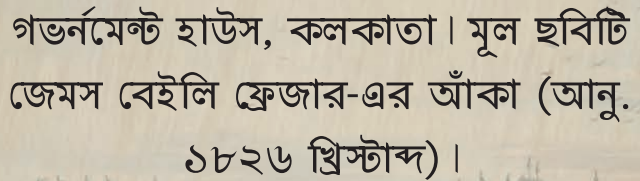 গভর্নমেন্ট হাউস, কলকাতা। মূল ছবিটি
জেমস বেইলি ফ্রেজার-এর আঁকা (আনু.
১৮২৬ খ্রিস্টাব্দ)।